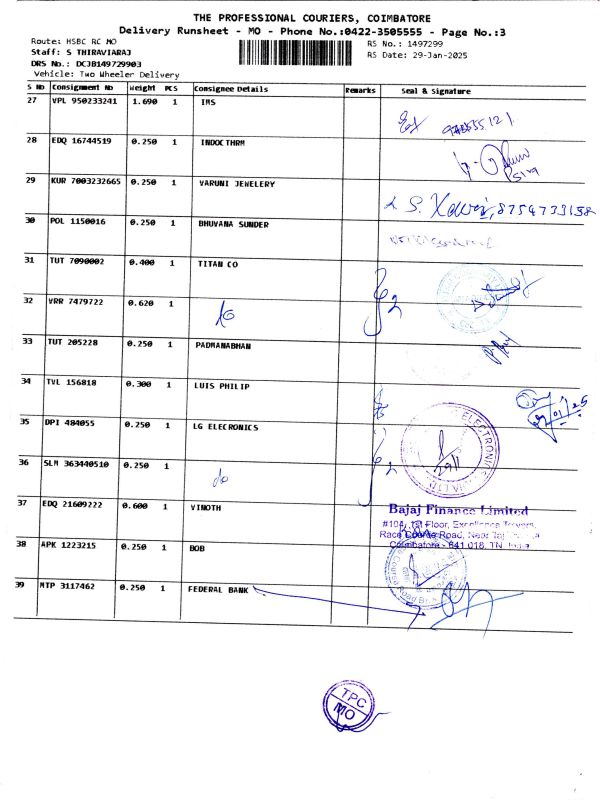 THE PROFESSIONAL COURIERS, COIMBATORE
Delivery Runsheet - MO - Phone No.:0422-3505555 - Page No.:3
Route: HSBC RC MO
RS No.: 1497299
Staff: S THIRAVIARAJ
RS Date: 29-Jan-2025
DRS No.: DCJB149729903
Vehicle: Two Wheeler Delivery
S No Consignment No Weight PCS Consignee Details Remarks Seal & Signature
27 VPL 950233241 1.690 1 IMS
28 EDQ 16744519 0.250 1 INDOCTHRM
29 KUR 7003232665 0.250 1 VARUNI JEWELERY
30 POL 1150016 0.250 1 BHUVANA SUNDER
31 TUT 7090002 0.400 1 TITAN CO
32 VRR 7479722 0.620 1 do
33 TUT 205228 0.250 1 PADMANABHAN
34 TVL 156818 0.300 1 LUIS PHILIP
35 DPI 484055 0.250 1 LG ELECRONICS
36 SLM 363440510 0.250 1 do
37 EDQ 21609222 0.600 1 VINOTH
Bajaj Finance Limited
#104, 1st Floor, Excellence Towers,
Race Course Road, Near Taj
Coimbatore - 641 018, TN, India
38 APK 1223215 0.250 1 BOB
39 MTP 3117462 0.250 1 FEDERAL BANK
TPC
MO